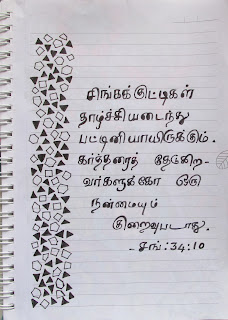 சிங்கக்குட்டிகள்
தாழ்ச்சியடைந்து
பட்டினியாயிருக்கும்.
கர்த்தரைத் தேடுகிற-
வர்களுக்கோ ஒரு
நன்மையும்
குறைவுபடாது.
- சங்: 34:10